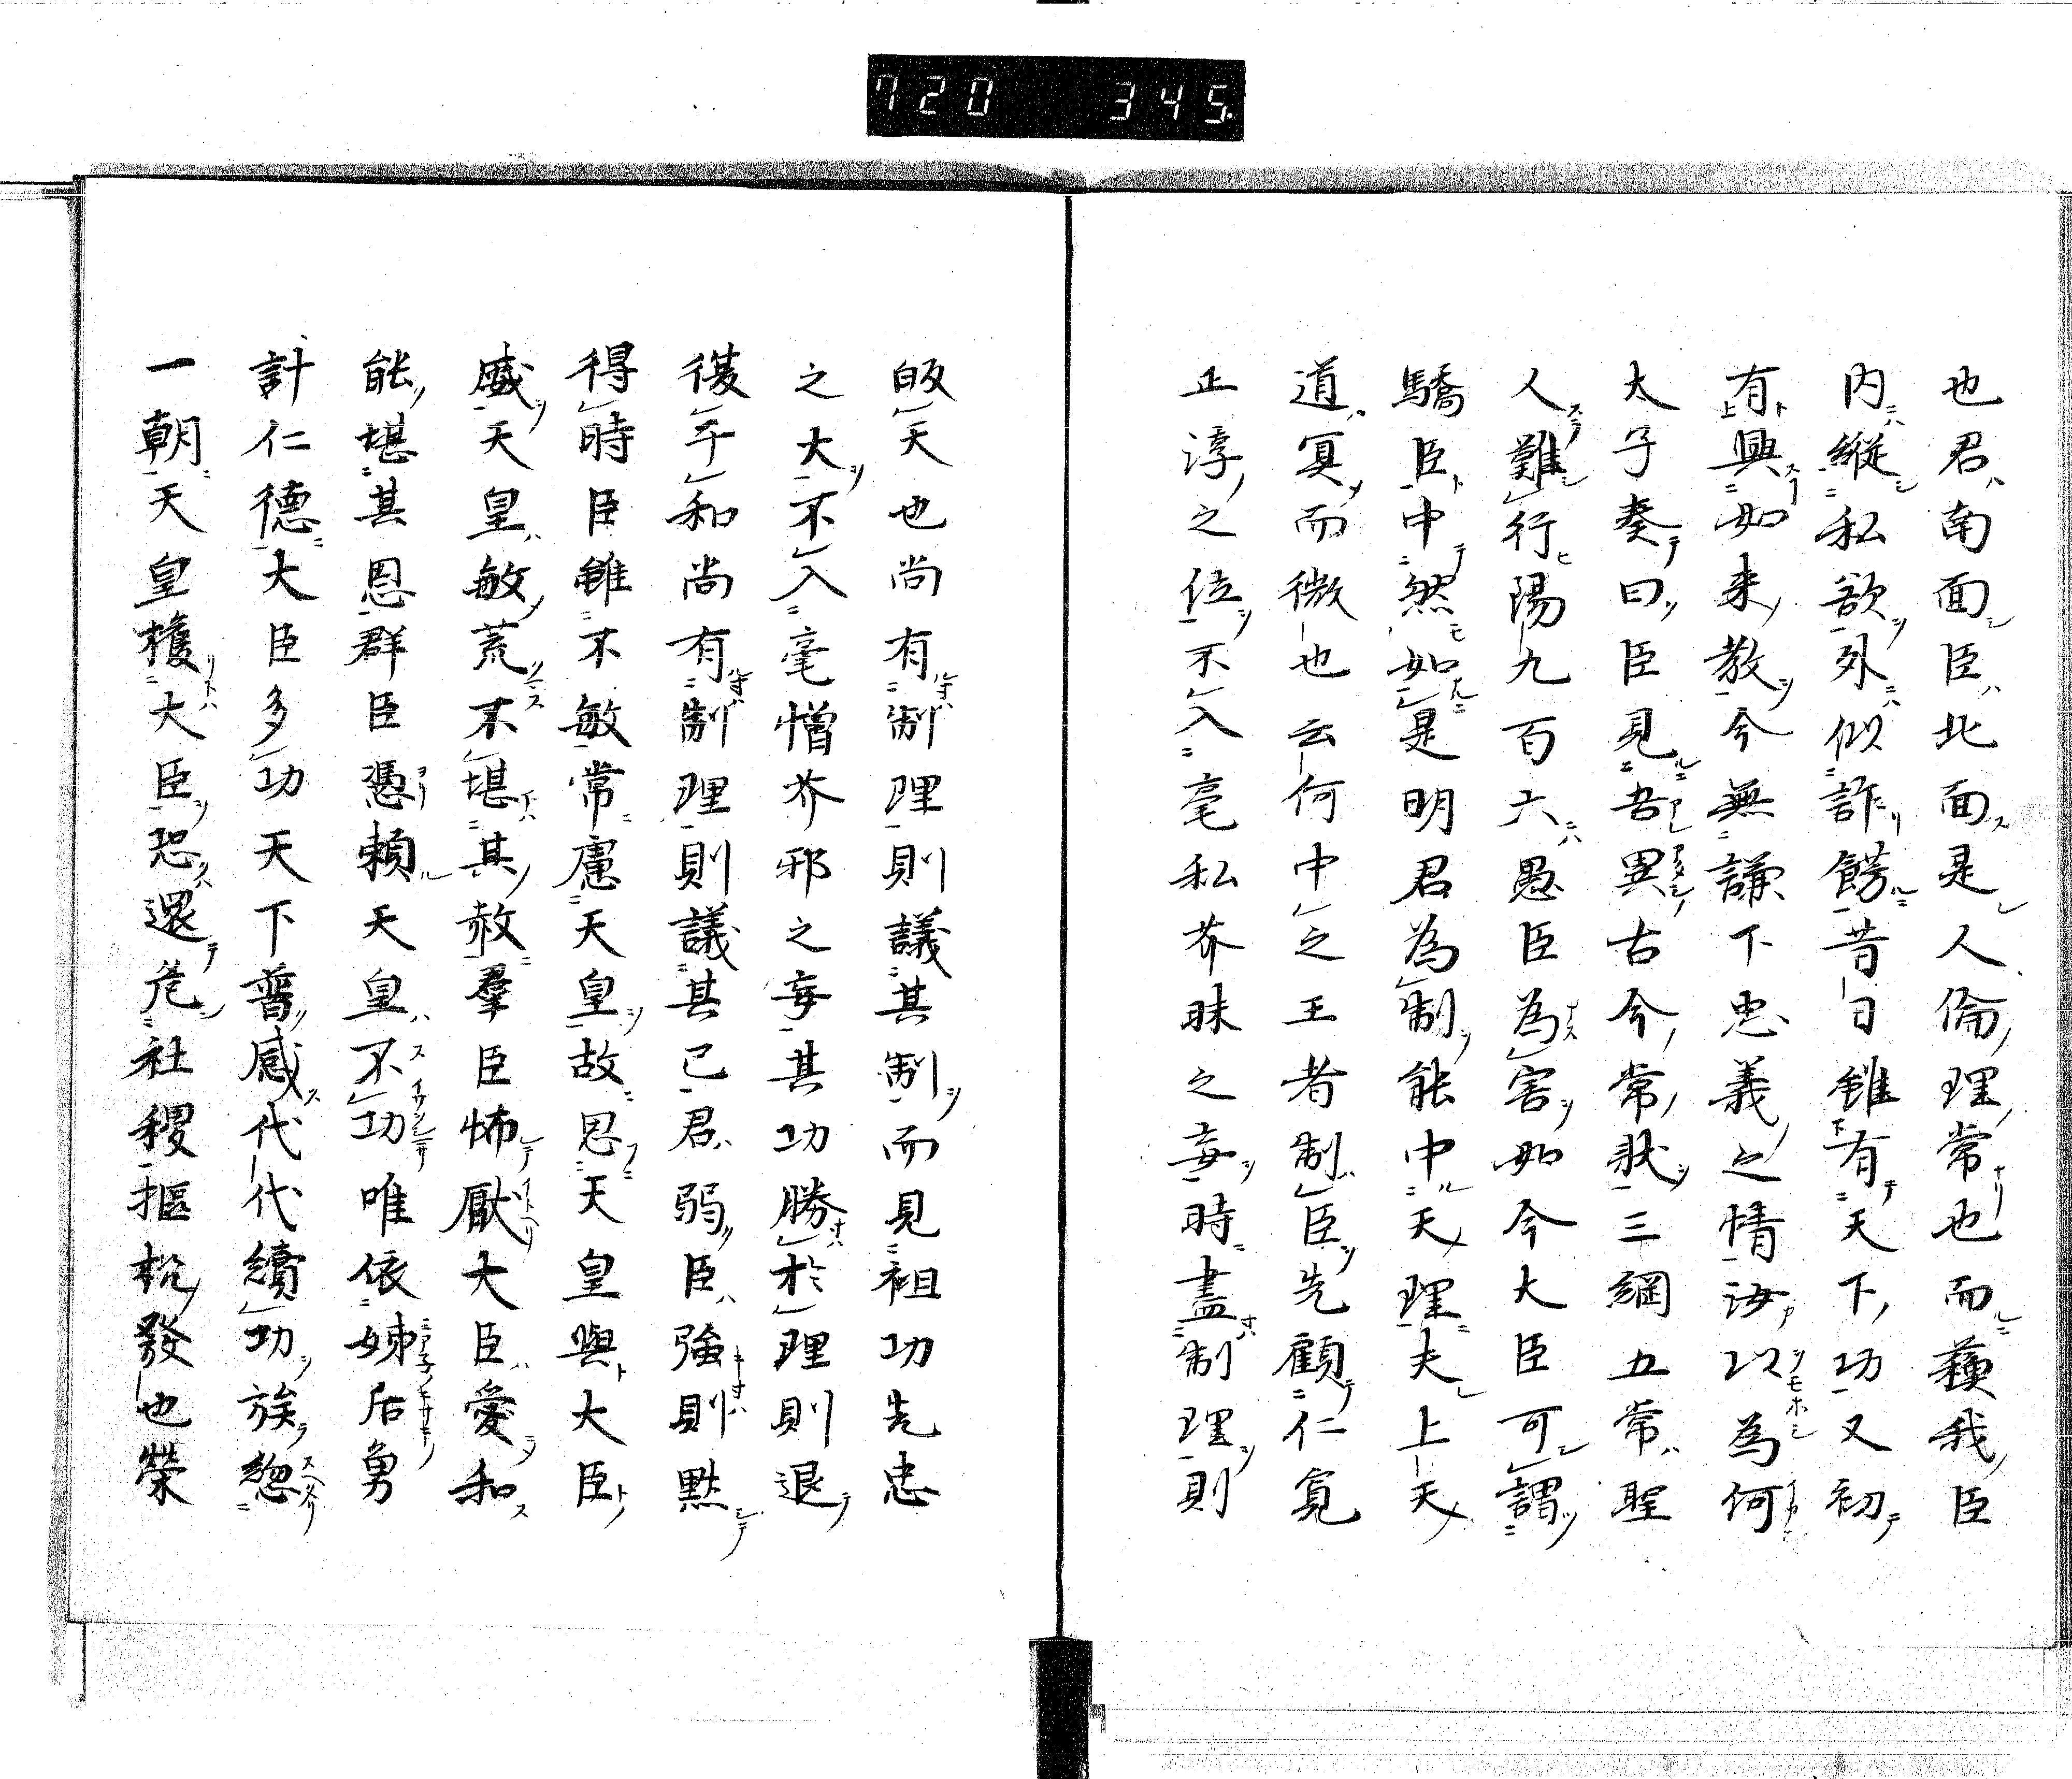 720 345
也君南面臣北面是人倫理常也而蘓我臣
内縱私欲外似詐餝昔日雖有天下功又初
有興如来教今無謙下忠義之情汝以為何
太子奏曰臣見吾異古今常狀三綱五常聖
人難行陽九百六愚臣為害如今大臣可謂
驕臣中然如是明君為制能中天理夫上天
道冥而微也云何中之王者制臣先顧仁寛
正淳之位不入毫私芥昧之妄時盡制理則
皈天也尚有制理則議其制而見祖功先忠
之大不入毫憎芥邪之妄其功勝於理則退
復年和尚有制理則議其已君弱臣強則黙
得時臣雖不敏常慮天皇故思天皇與大臣
威天皇敏荒不堪其赦羣臣怖厭大臣愛和
能堪其恩群臣憑頼天皇不功唯依姉后舅
計仁德大臣多功天下普感代代續功族惣
一朝天皇獲大臣恐還危社稷樞机發也榮